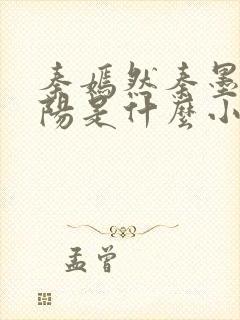 秦嫣然秦墨
陽是什麼小
孟曾